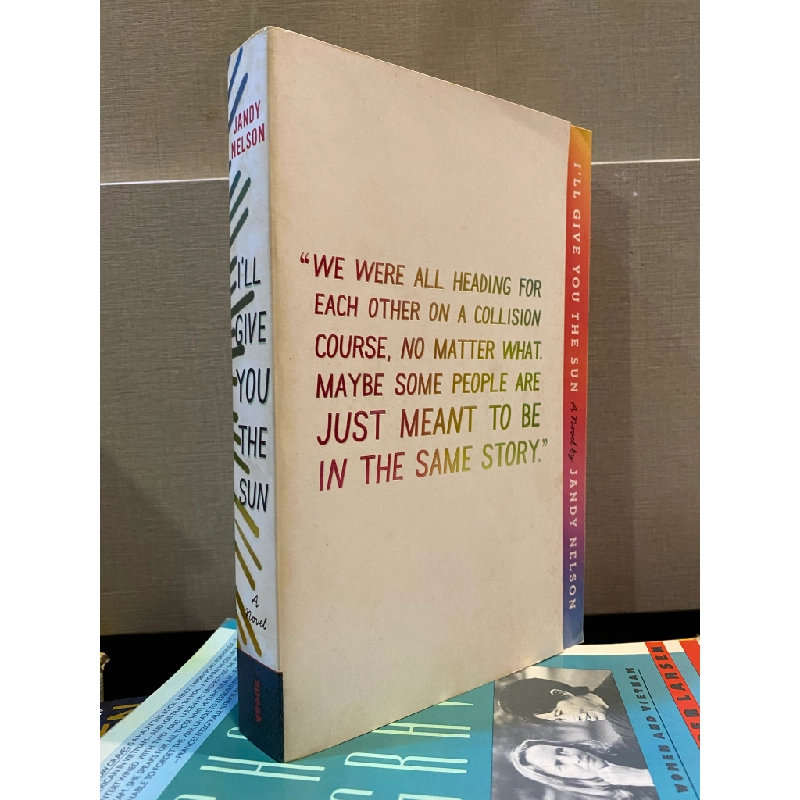 JANDY
NELSON
I'LL
GIVE
YOU
THE
SUN
A
Novel
speak
"WE WERE ALL HEADING FOR
EACH OTHER ON A COLLISION
COURSE, NO MATTER WHAT.
MAYBE SOME PEOPLE ARE
JUST MEANT TO BE
IN THE SAME STORY."
I'LL GIVE YOU THE SUN A Novel by JANDY NELSON
WOMEN AND VIETNAM
LARSEN